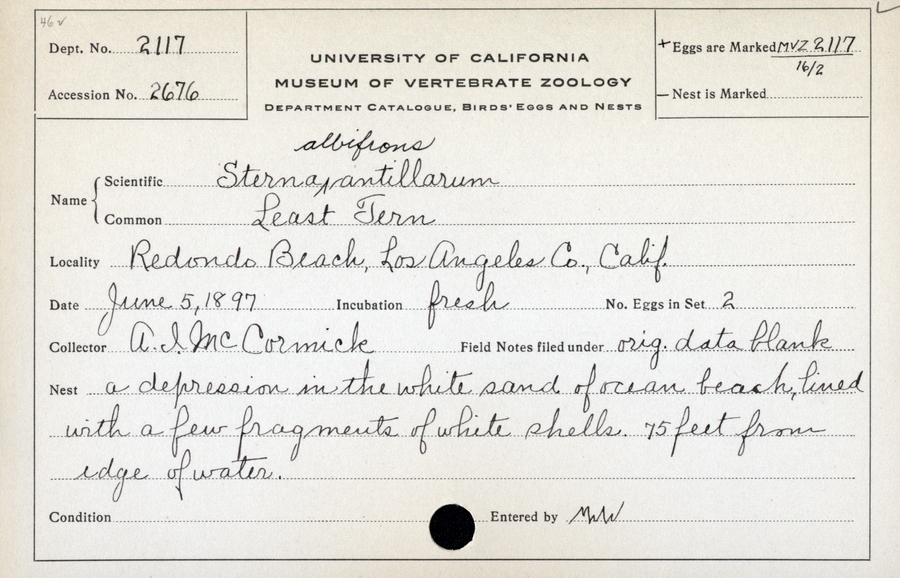 46✓
Dept. No. 2117
Accession No. 2676
UNIVERSITY OF CALIFORNIA
MUSEUM OF VERTEBRATE ZOOLOGY
DEPARTMENT CATALOGUE, BIRDS' EGGS AND NESTS
+ Eggs are Marked MVZ 2117
16/2
— Nest is Marked
albifrons
Name { Scientific Sterna ‸ antillarum
Common Least Tern
Locality Redondo Beach, Los Angeles Co., Calif.
Date June 5, 1897 Incubation fresh No. Eggs in Set 2
Collector A. I. McCormick Field Notes filed under orig. data blank
Nest a depression in the white sand of ocean beach, lined
with a few fragments of white shells. 75 feet from
edge of water.
Condition Entered by